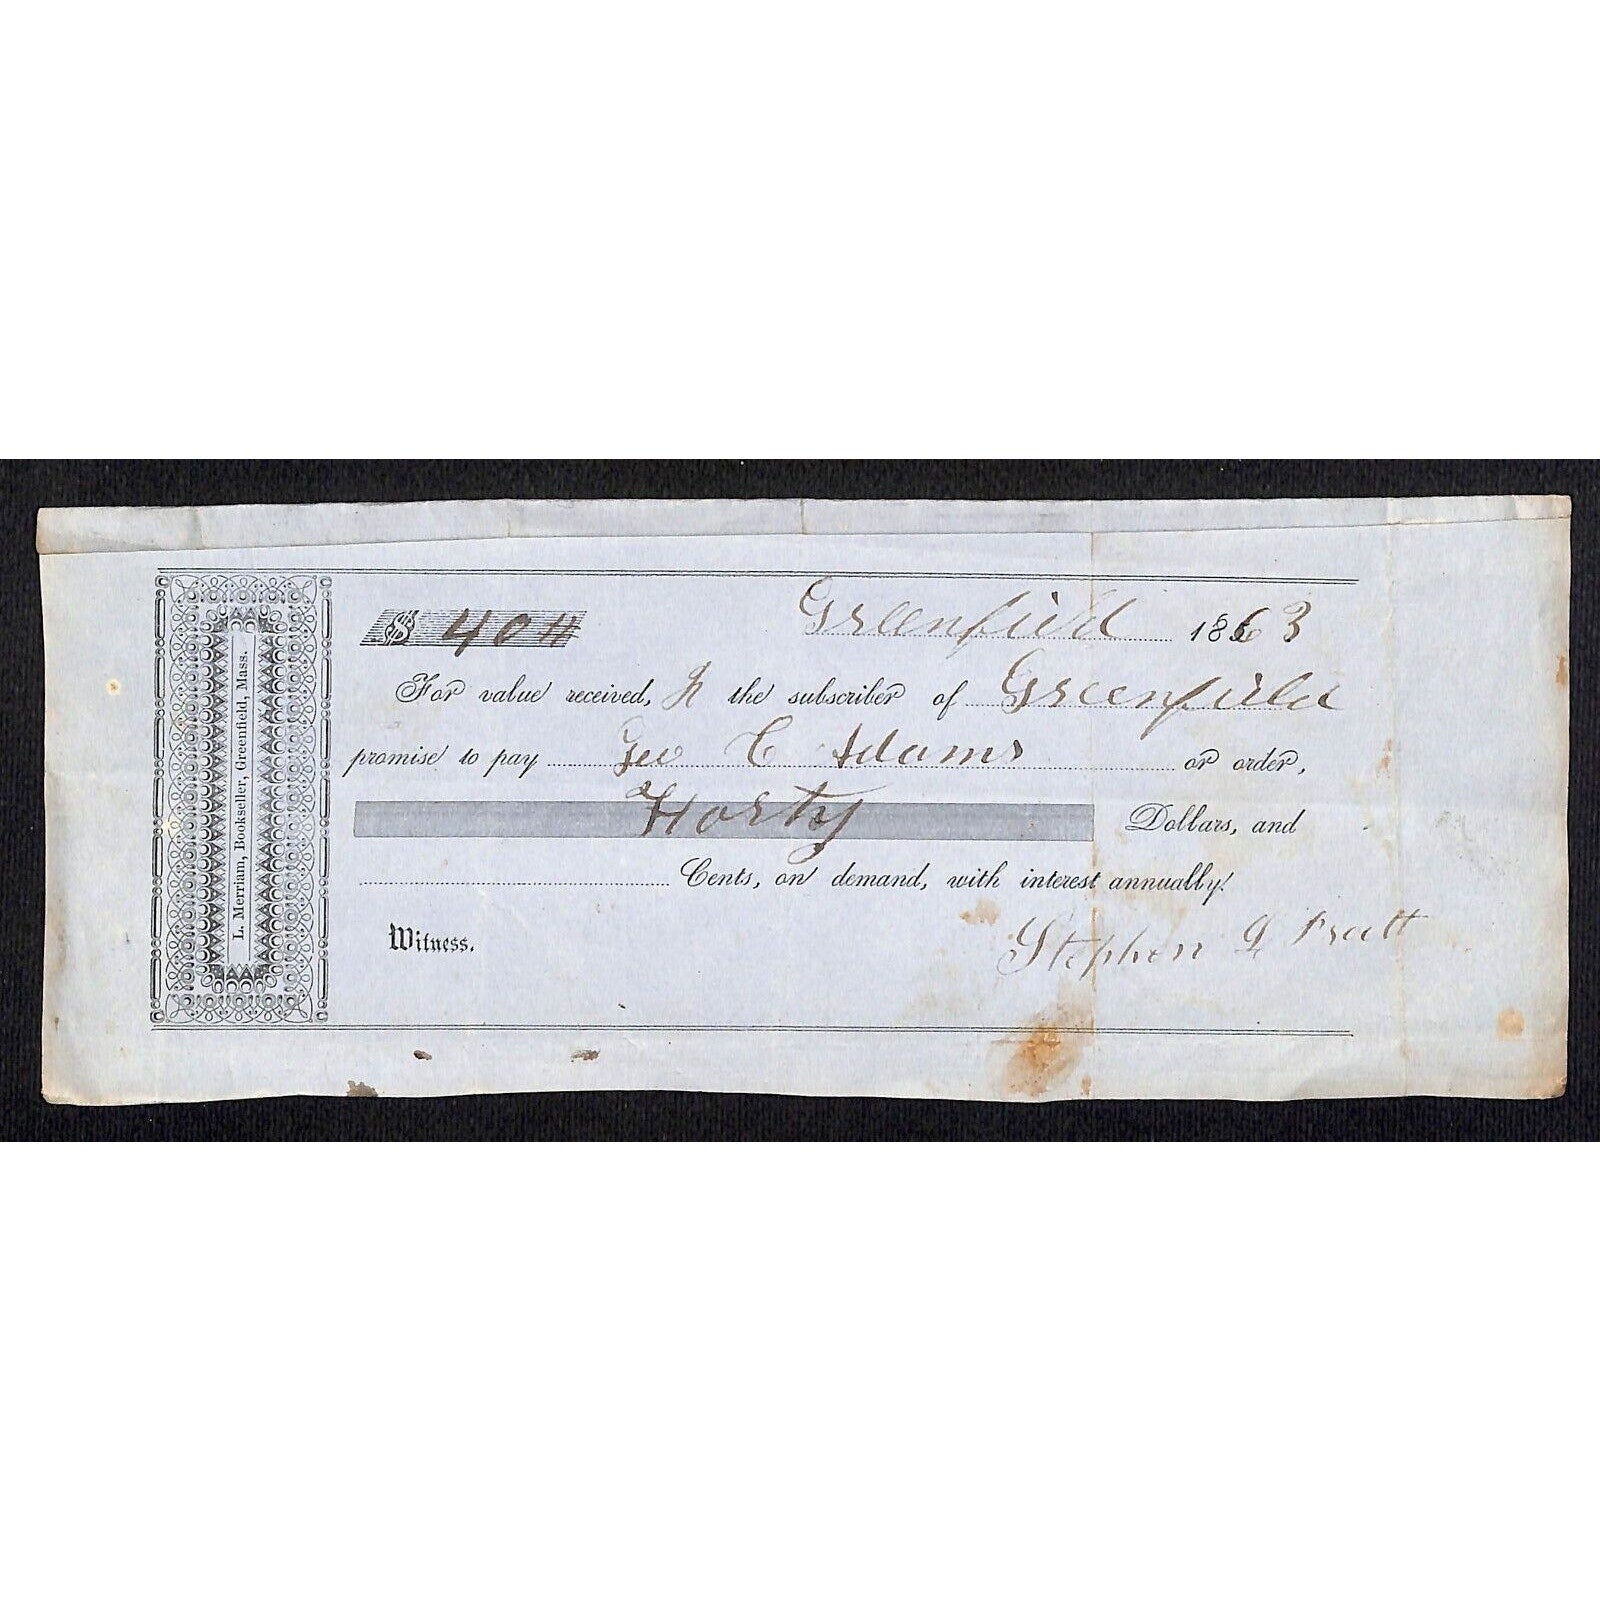 L. Merriam, Bookseller, Greenfield, Mass.
$ 40
Greenfield 1863
For value received, I the subscriber of Greenfield
promise to pay Geo C Adams or order,
Forty Dollars, and
Cents, on demand, with interest annually.
Witness.
Stephen G Pratt